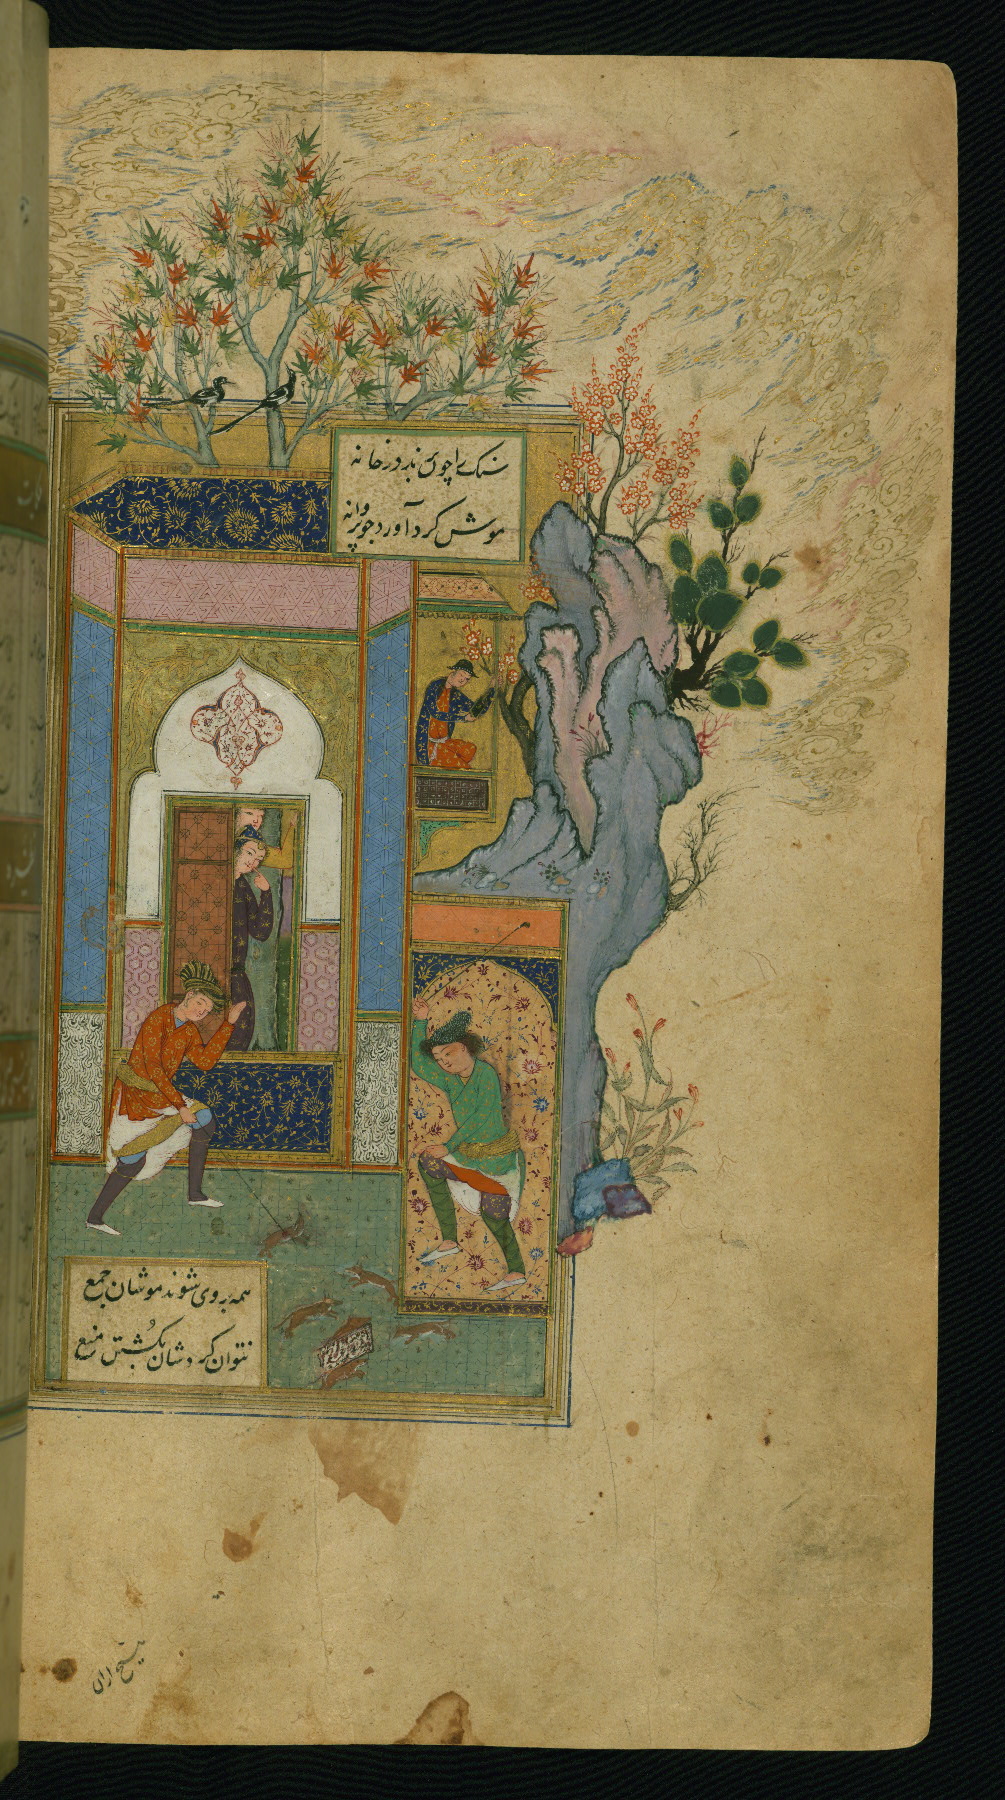 سنک را چون نبد در خانه
موش کرد آورد چو پروانه
همه بروی شوند موشان جمع
نتوان کردشان بکشتن منع